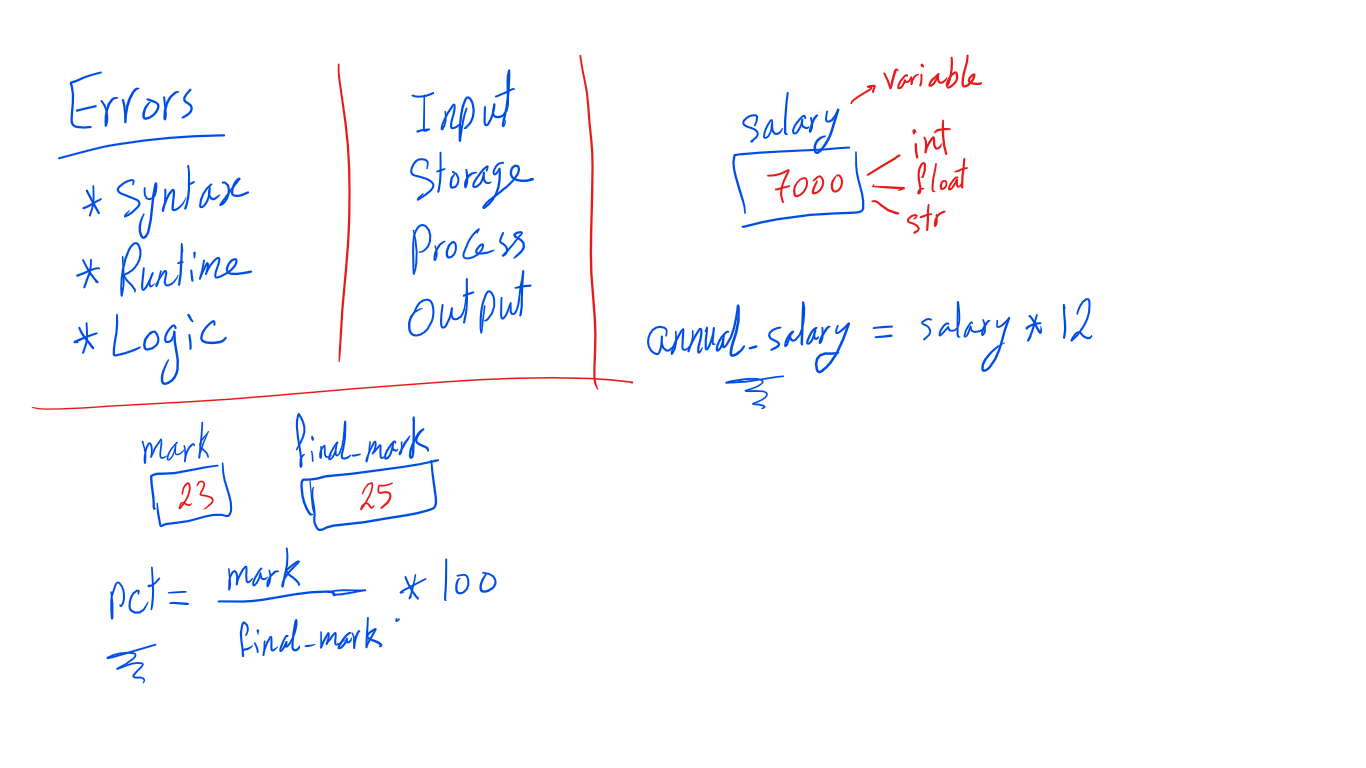 Errors
* Syntax
* Runtime
* Logic
Input
Storage
Process
Output
variable
salary
7000
int
float
str
annual_salary = salary * 12
mark
23
final_mark
25
pct = mark / final_mark * 100